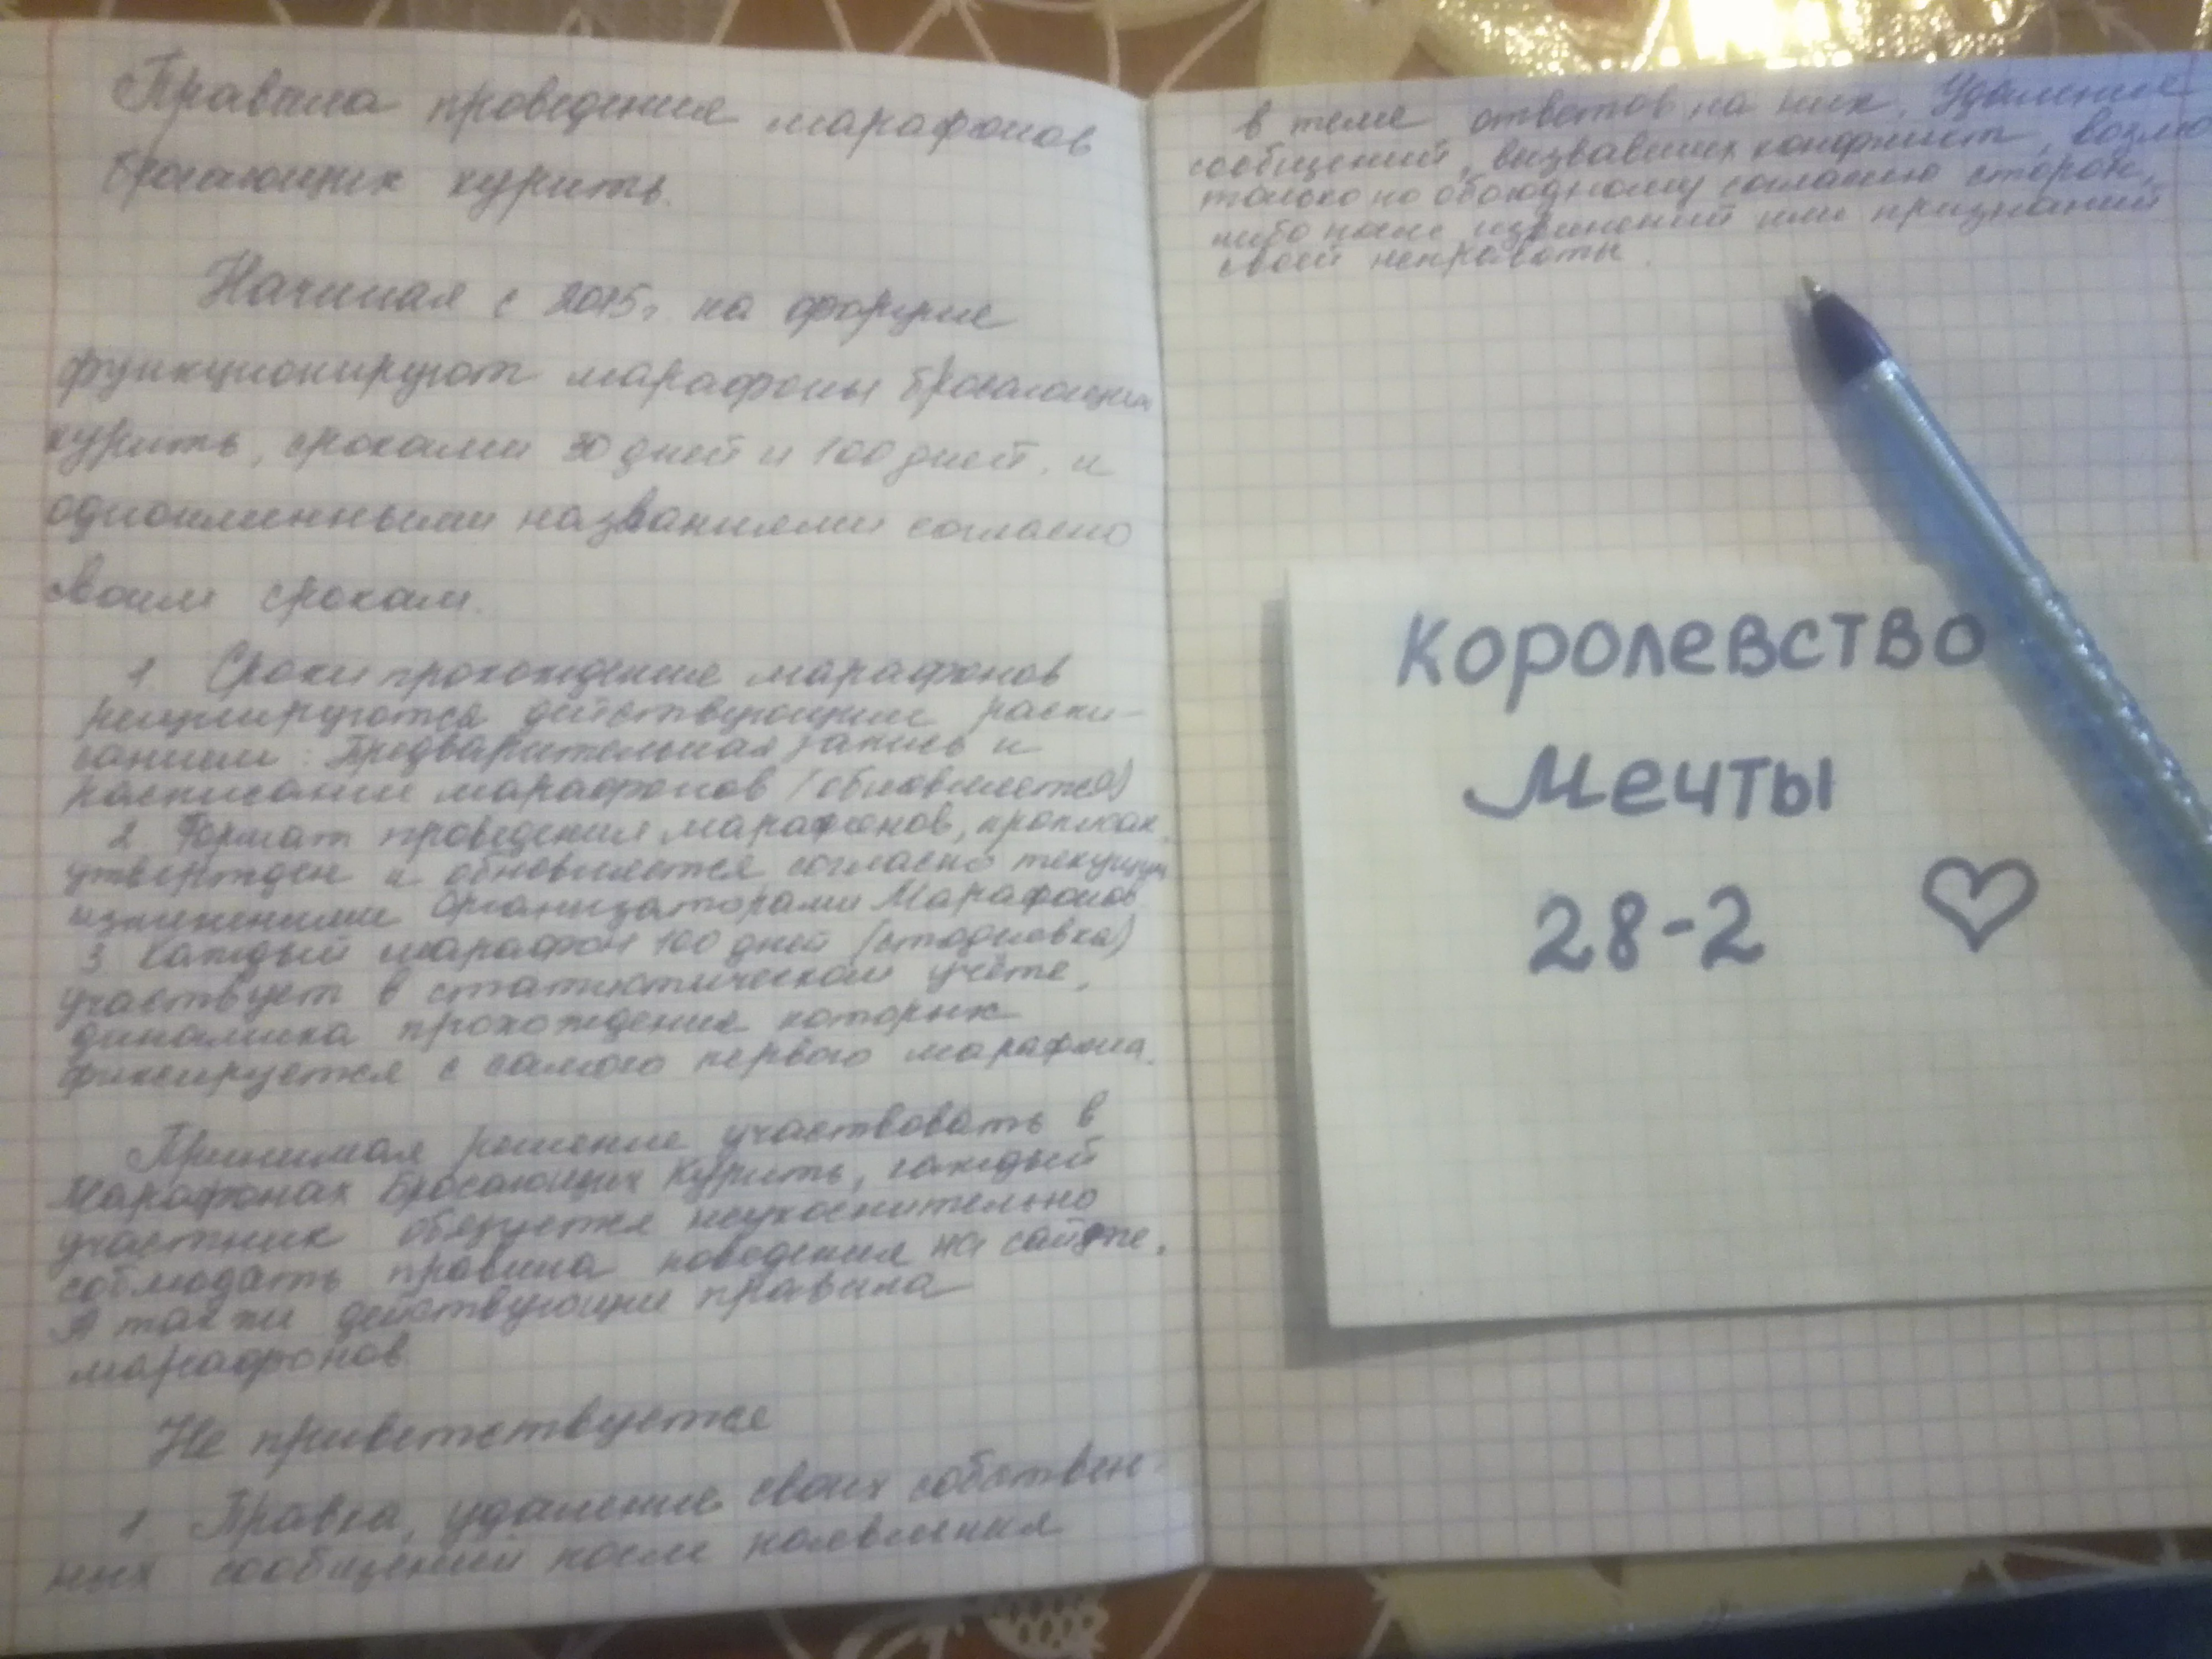 Правила проведения марафонов
бросающих курить.
Начиная с 2015г. на форуме
функционируют марафоны бросающих
курить, сроками 30 дней и 100 дней, и
одноименными названиями согласно
своим срокам.
1 Сроки прохождения марафонов
регулируются действующим распи-
санием: Предварительная запись и
расписание марафонов (обновляется)
2. Формат проведения марафонов,
утвержден и обновляется согласно текущим
изменениями Организаторами Марафонов
3 Каждый марафон 100 дней (стодневка)
участвует в статистическом учёте,
динамика прохождения которых
фиксируется с самого первого марафона.
Принимая решение участвовать в
Марафонах Бросающих Курить, каждый
участник обязуется неукоснительно
соблюдать правила поведения на сайте.
А также действующие правила
марафонов
Не приветствуется
1. Правка, удаление своих собствен-
ных сообщений после появления
в теме ответов на них. Удаление
сообщений, вызвавших конфликт,
только по обоюдному согласию сторон,
либо после извинений или признаний
своей неправоты.
Королевство
Мечты
28-2 ♡